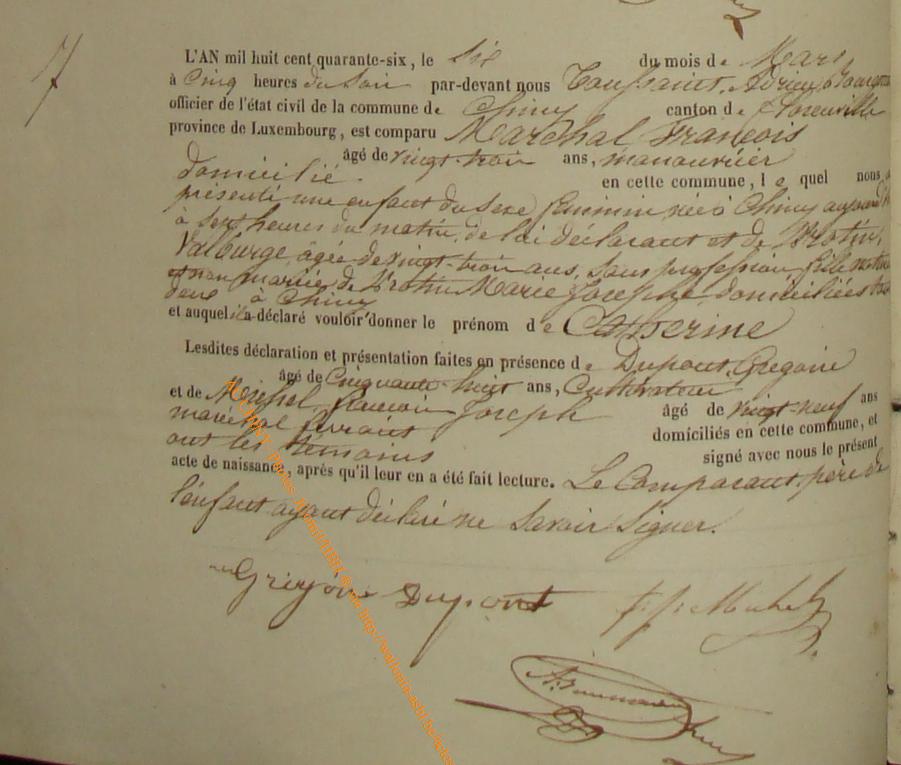 7
L'AN mil huit cent quarante-six, le Six du mois de Mars
à Cinq heures du Soir par-devant nous Toussaint, Adrien
officier de l'état civil de la commune de Chiny canton de Florenville
province de Luxembourg, est comparu Maréchal François
âgé de vingt-trois ans, manouvrier
domicilié en cette commune, le quel nous a
présenté une enfant du sexe féminin née à Chiny
à sept heures du matin, de lui déclarant et de Brotin,
Valburge, âgée de vingt-trois ans, sans profession fille
non mariée de Brotin Marie Josephe domiciliées
deux à Chiny
et auquel il a déclaré vouloir donner le prénom de Catherine
Lesdites déclaration et présentation faites en présence de Dupont, Grégoire
âgé de Cinquante-huit ans, Cultivateur
et de Michel, François Joseph âgé de vingt-neuf ans
maréchal ferrant domiciliés en cette commune, et
ont les témoins signé avec nous le présent
acte de naissance, après qu'il leur en a été fait lecture. Le Comparant, père de
l'enfant ayant déclaré ne savoir signer.
Grégoire Dupont f: j: Michel